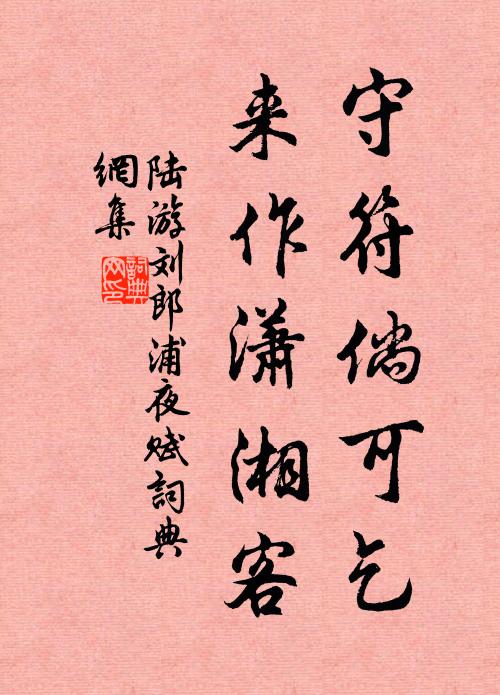 守符倘可乞
来作潇湘客
陆游刘郎浦夜赋詞典
網集
詞典
网印